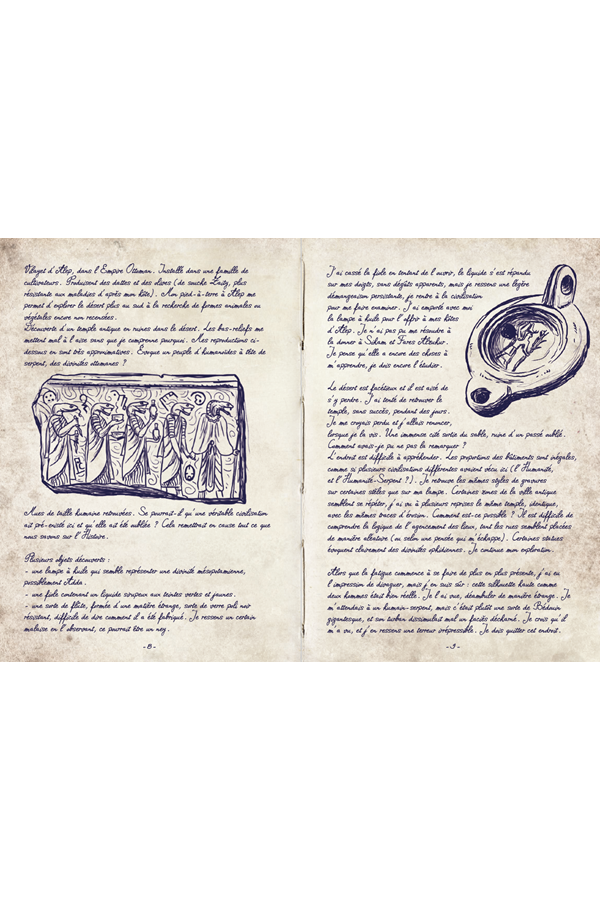 Vilayet d'Alep, dans l'Empire Ottoman. Installé dans une famille de
cultivateurs. Produisent des dattes et des olives (de souche Zaity, plus
résistante aux maladies d'après mon hôte). Mon pied-à-terre à Alep me
permet d'explorer le désert plus au sud à la recherche de formes animales ou
végétales encore non recensées.
Découverte d'un temple antique en ruines dans le désert. Les bas-reliefs me
mettent mal à l'aise sans que je comprenne pourquoi. Mes reproductions ci-
dessous en sont très approximatives. Évoque un peuple d'humanoïdes à tête de
serpent, des divinités ottomanes ?
Mues de taille humaine retrouvées. Se pourrait-il qu'une véritable civilisation
ait pré-existé ici et qu'elle ait été oubliée ? Cela remettrait en cause tout ce que
nous savons sur l'Histoire.
Plusieurs objets découverts :
- une lampe à huile qui semble représenter une divinité mésopotamienne,
possiblement Adda.
- une fiole contenant un liquide sirupeux aux teintes vertes et jaunes.
- une sorte de flûte, formée d'une matière étrange, sorte de verre poli noir
résistant, difficile de dire comment il a été fabriqué. Je ressens un certain
malaise en l'observant, ce pourrait être un ney.
- 8 -
J'ai cassé la fiole en tentant de l'ouvrir, le liquide s'est répandu
sur mes doigts, sans dégâts apparents, mais je ressens une légère
démangeaison persistante, je rentre à la civilisation
pour me faire examiner. J'ai emporté avec moi
la lampe à huile pour l'offrir à mes hôtes
d'Alep. Je n'ai pas pu me résoudre à
la donner à Siham et Fares Alzukur.
Je pense qu'elle a encore des choses à
m'apprendre, je dois encore l'étudier.
Le désert est facétieux et il est aisé de
s'y perdre. J'ai tenté de retrouver le
temple, sans succès, pendant des jours.
Je me croyais perdu et j'allais renoncer,
lorsque je la vis. Une immense cité sortie du sable, ruine d'un passé oublié.
Comment avais-je pu ne pas la remarquer ?
L'endroit est difficile à appréhender. Les proportions des bâtiments sont inégales,
comme si plusieurs civilisations différentes avaient vécu ici (l'Humanité,
et l'Humanité-Serpent ?). Je retrouve les mêmes styles de gravures
sur certaines stèles que sur ma lampe. Certaines zones de la ville antique
semblent se répéter, j'ai vu à plusieurs reprises le même temple, identique,
avec les mêmes traces d'érosion. Comment est-ce possible ? Il est difficile de
comprendre la logique de l'agencement des lieux, tant les rues semblent placées
de manière aléatoire (ou selon une pensée qui m'échappe). Certaines statues
évoquent clairement des divinités ophidiennes. Je continue mon exploration.
Alors que la fatigue commence à se faire de plus en plus présente, j'ai eu
l'impression de divaguer, mais j'en suis sûr : cette silhouette haute comme
deux hommes était bien réelle. Je l'ai vue, déambuler de manière étrange. Je
m'attendais à un humain-serpent, mais c'était plutôt une sorte de Bédouin
gigantesque, et son turban dissimulait mal un faciès décharné. Je crois qu'il
m'a vu, et j'en ressens une terreur irrépressible. Je dois quitter cet endroit.
- 9 -